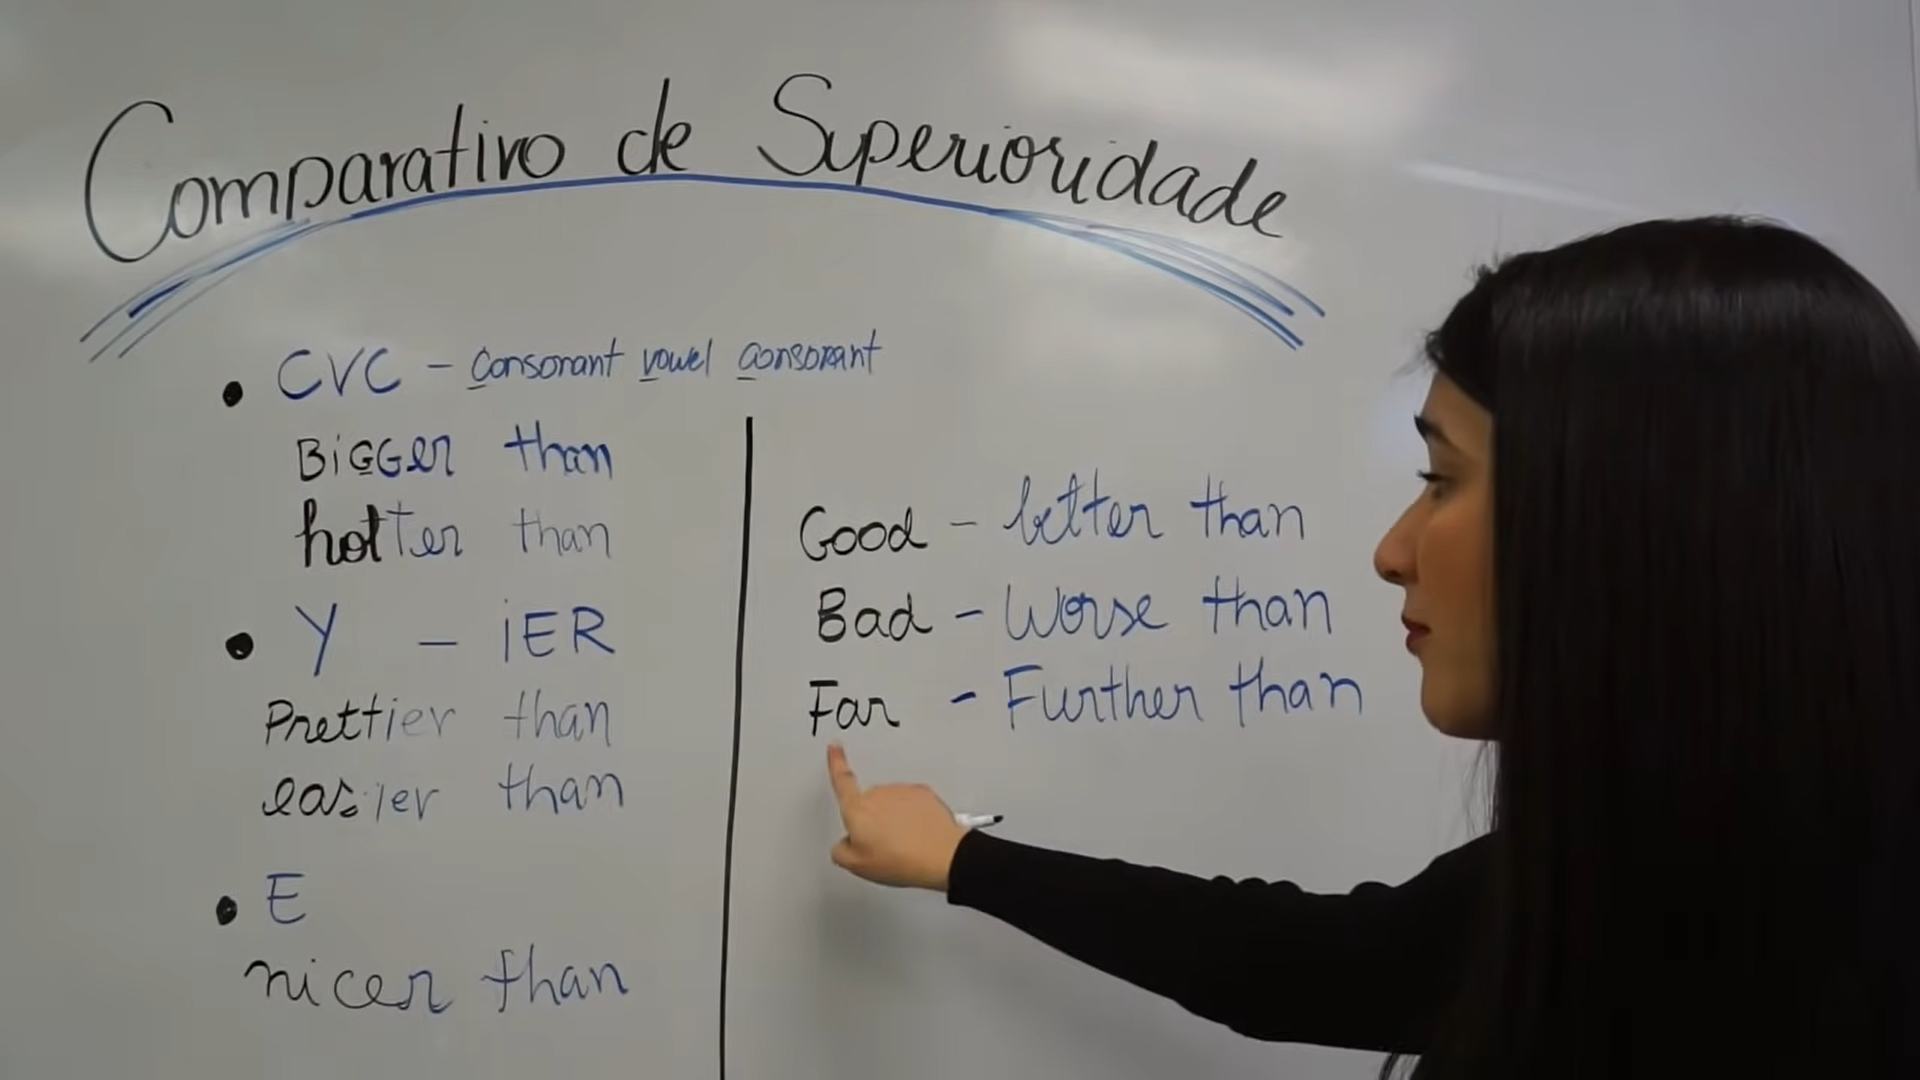 Comparativo de Superioridade
• CVC - consonant vowel consonant
BiGGer than
hotter than
• Y - iER
Prettier than
easier than
• E
nicer than
Good - better than
Bad - Worse than
Far - Further than